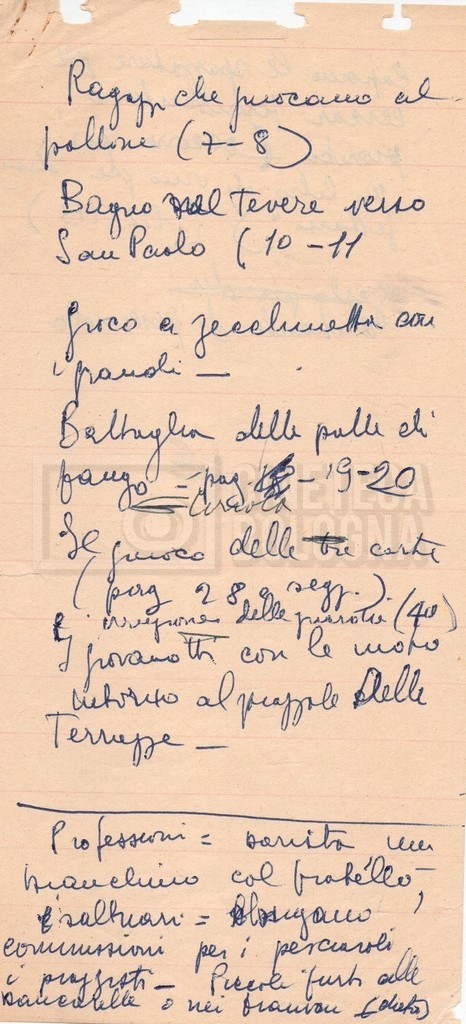 Ragazzi che giocano al
pallone (7-8)
Bagno sul Tevere verso
San Paolo (10-11
Gioco a zecchinetta con
i grandi —
Battaglia delle palle di
fango — pag. 19-20
CINETECA
BOLOGNA
Il giuoco delle tre carte
(pag 28 e segg.)
L'irruzione delle guardie (40)
I giovanotti con le moto
intorno al piazzale delle
Terrazze —
Professioni = barista un
bianchino col fratello,
saltuari =
commissioni per i pesciaroli
i piazzisti — Piccoli furti alle
bancarelle o nei tranvai (dietro)